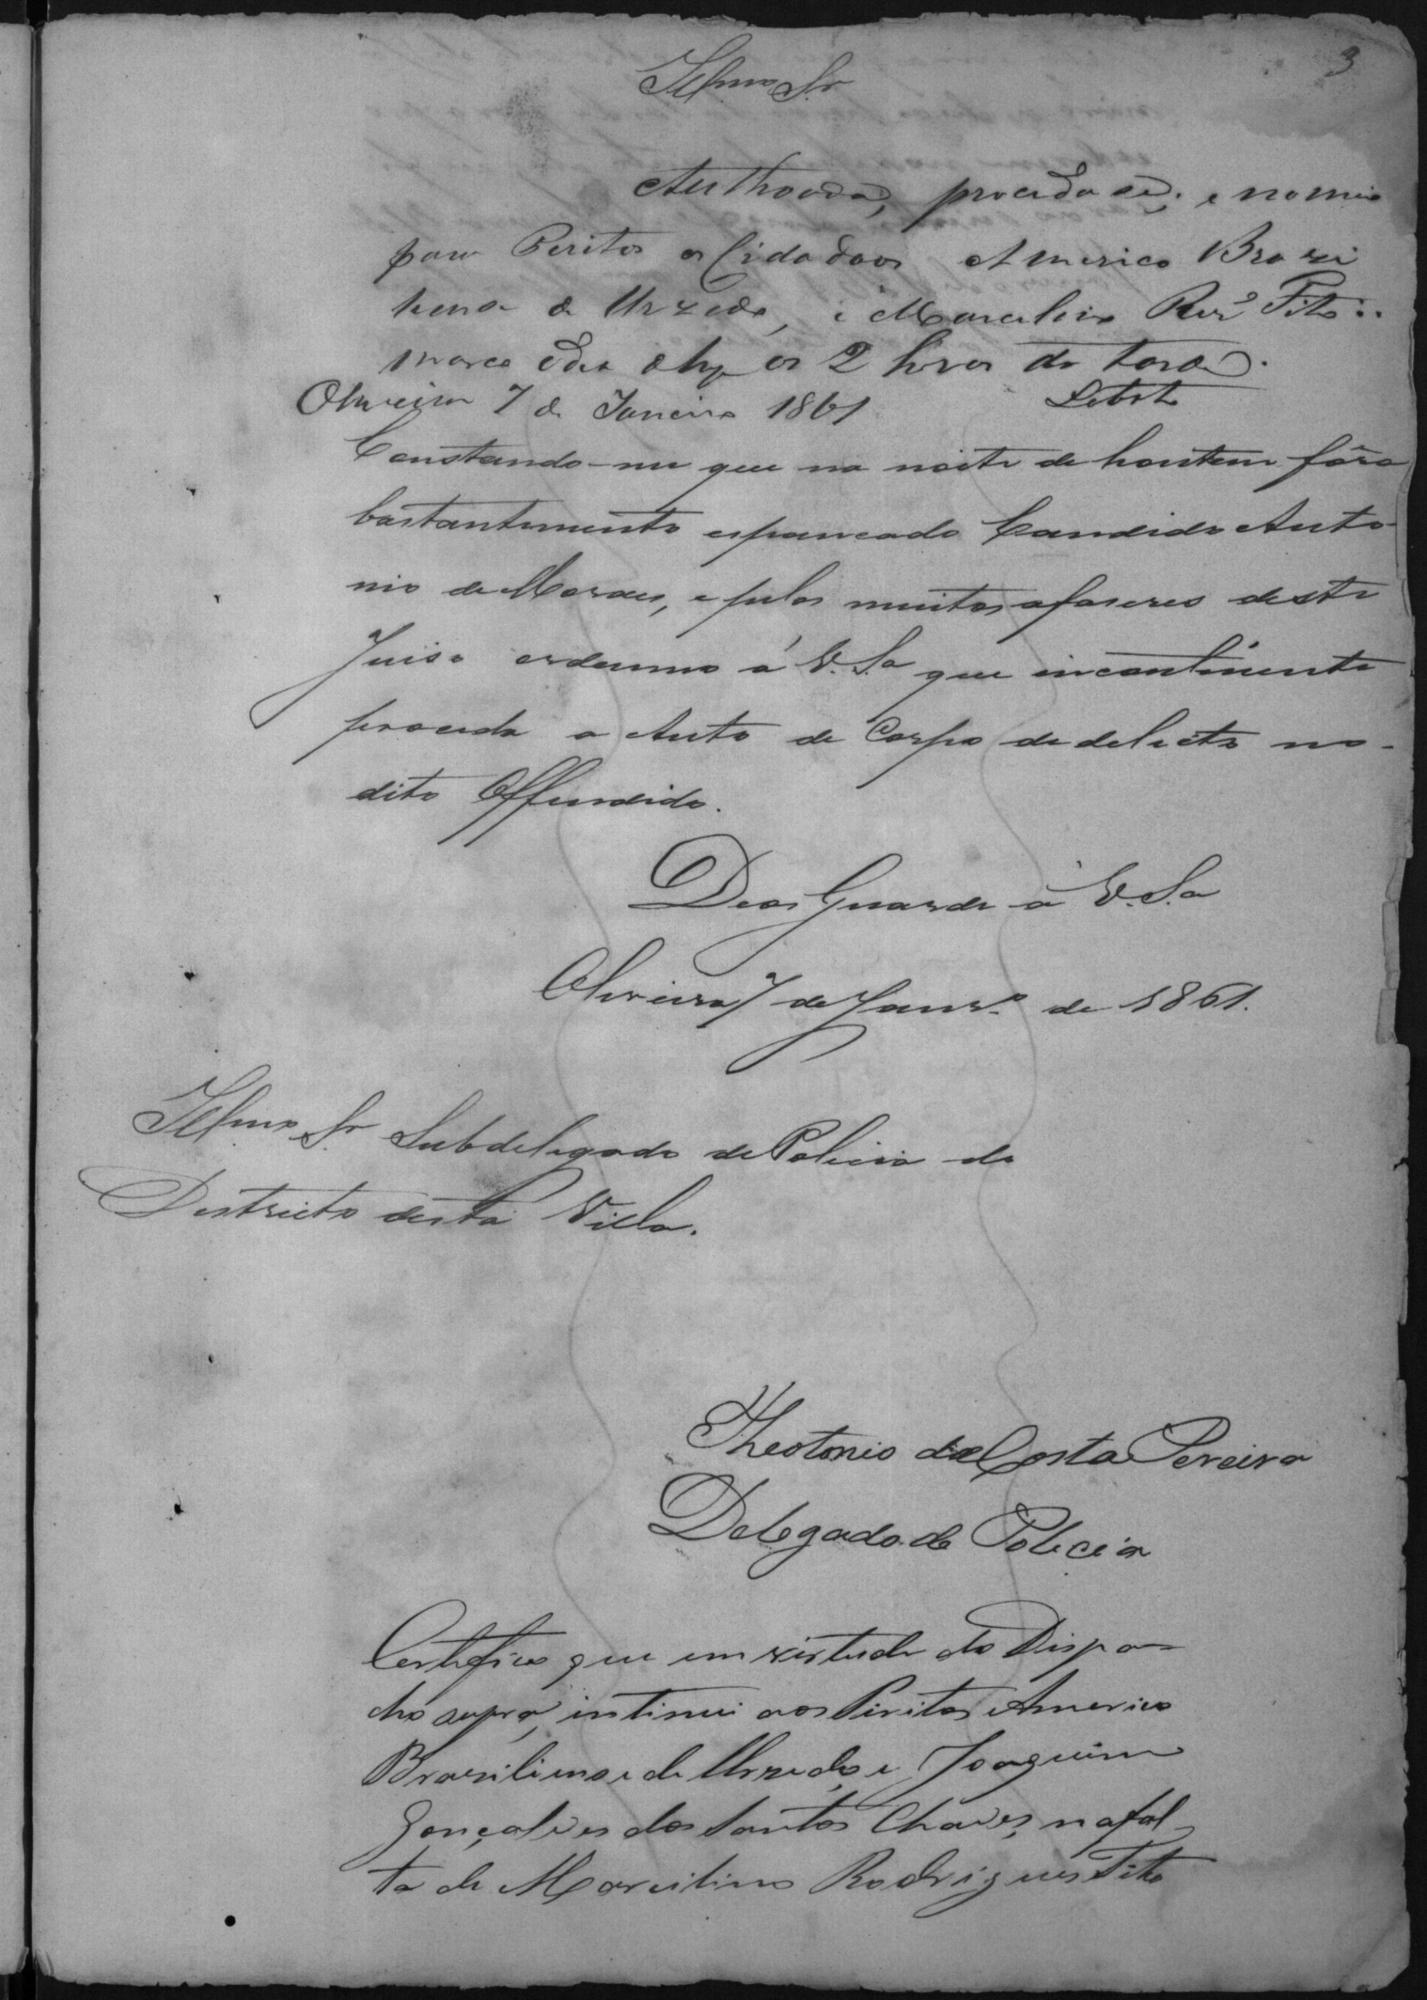 3
Illmo Sr
Authoada, proceda se; e nomeio
para Peritos os Cidadaos Americo Brazi
liense de Urzeda, e Marcelino Roiz Tito:
marco o dia de hoje as 2 horas da tarde.
Oliveira 7 de Janeiro 1861
Constando-me que na noite de hontem fôra
bastantemente espancado Candido Anto-
nio de Moraes, e pelos muitos afaseres deste
Juiso ordenno á V. Sa que incontinente
proceda a Auto de Corpo de delicto no
dito Offendido.
Deos Guarde á V. Sa
Oliveira 7 de Janro de 1861.
Illmo Sr Subdelegado de Policia do
Districto desta Villa.
Theotonio da Costa Pereira
Delegado de Policia
Certefico que em virtude do Dispa-
cho supra, intimei aos Peritos Americo
Braziliense de Urzeda, e Joaquim
Gonçalves dos Santos Chaves, na fal-
ta de Marcilino Rodrigues Tito